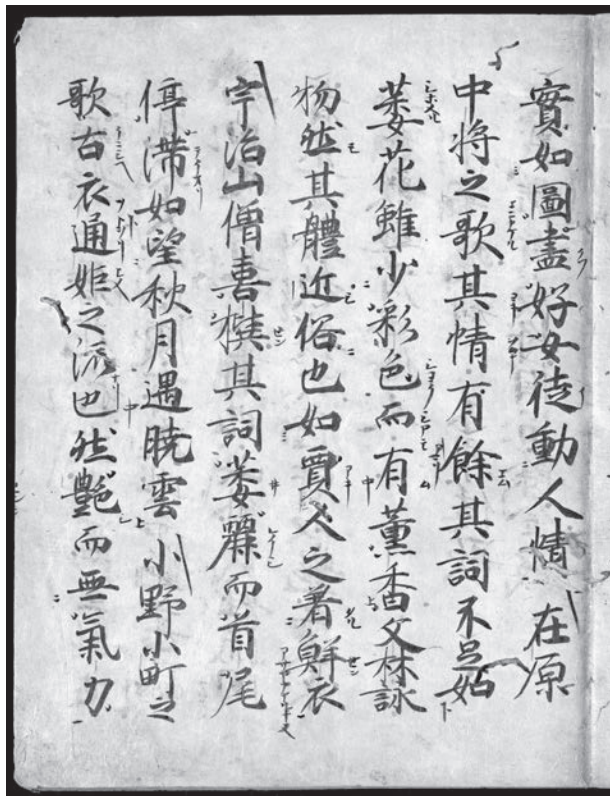 實如圖盡好女徒動人情在原
中将之歌其情有餘其詞不足如
萎花雖少彩色而有薫香文林詠
物然其體近俗也如賈人之着鮮衣
宇治山僧喜撰其詞萎麗而首尾
停滞如望秋月遇暁雲小野小町之
歌古衣通姫之流也然艶而無氣力